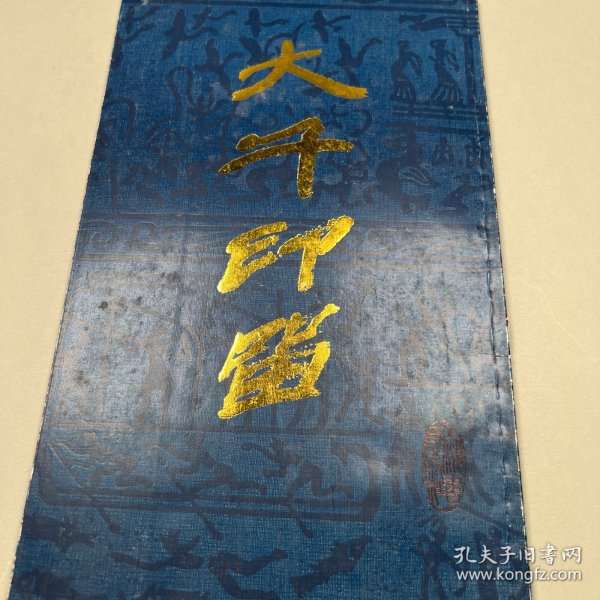 大千印留
孔夫子旧书网
www.kongfz.com